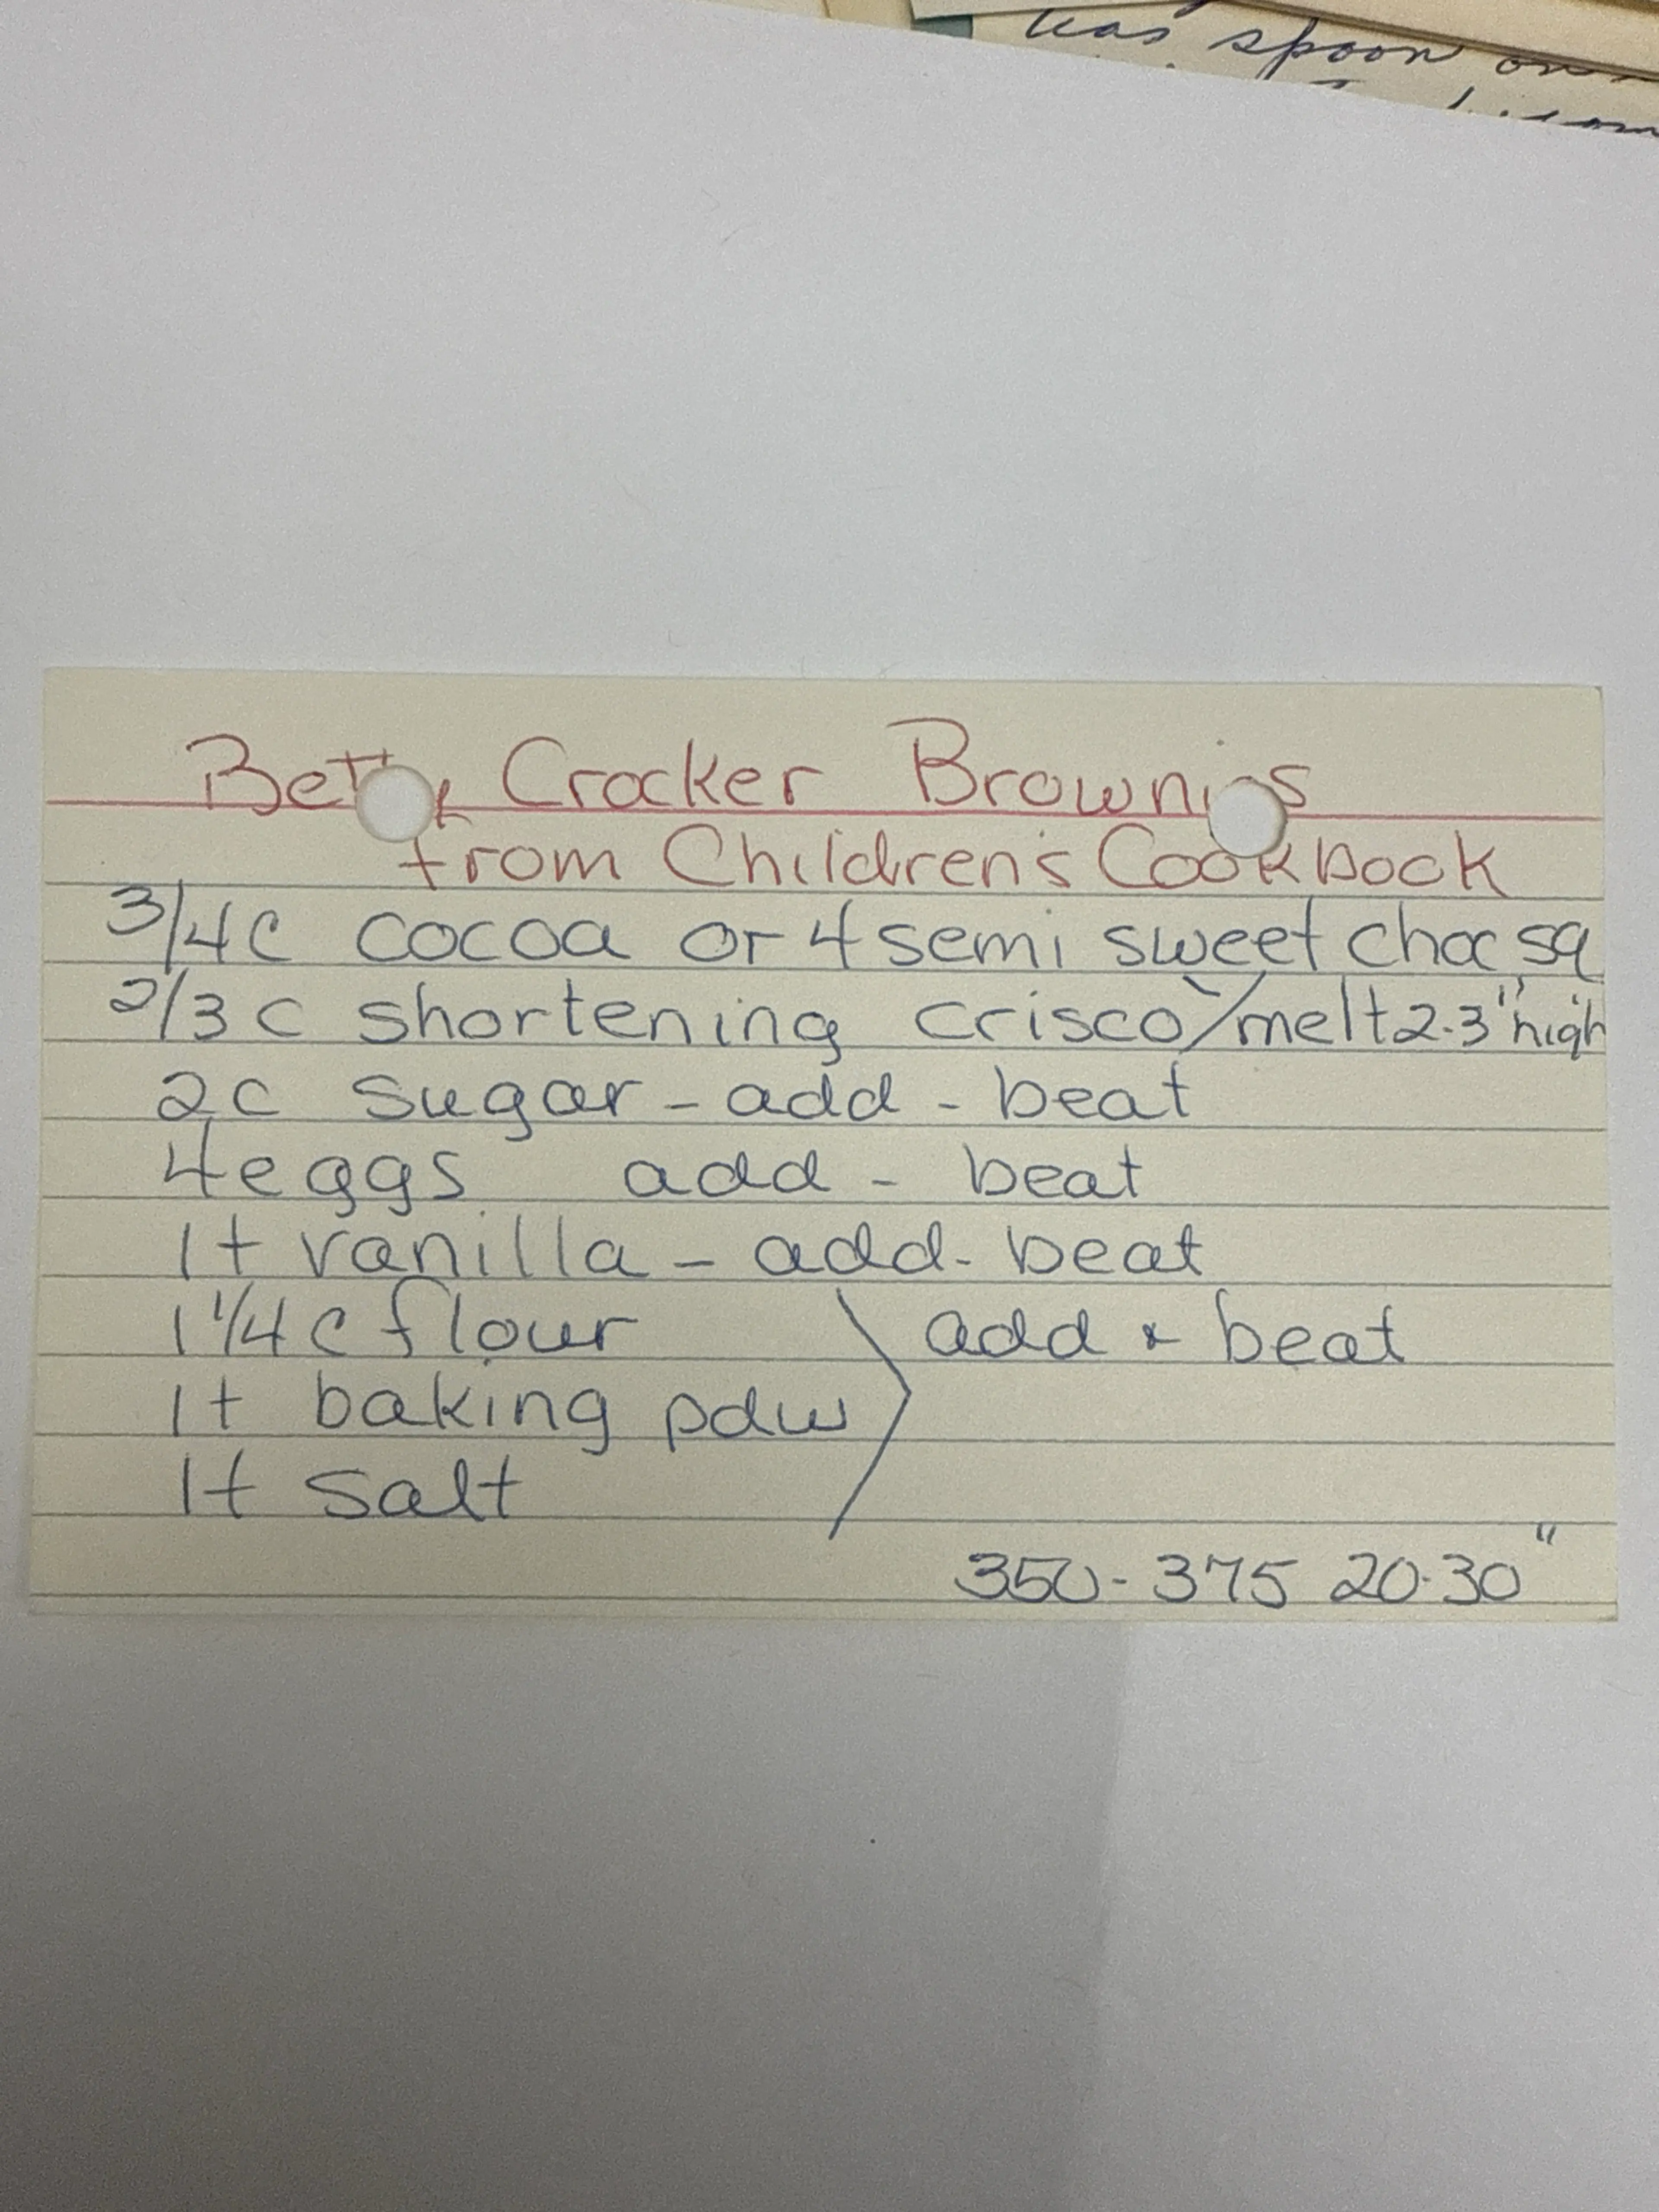 teas spoon on
Betty Crocker Brownies
from Children's Cookbook
3/4 C cocoa or 4 semi sweet choc sq
2/3 C shortening crisco / melt 2-3" high
2C sugar - add - beat
4 eggs add - beat
1 t vanilla - add - beat
1 1/4 C flour
1 t baking pdw
1 t salt
add & beat
350-375 20-30"